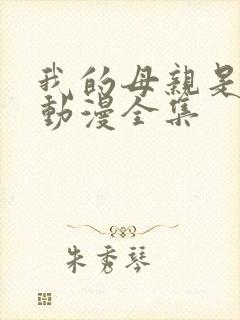 我的母親是
動漫全集
朱秀琴